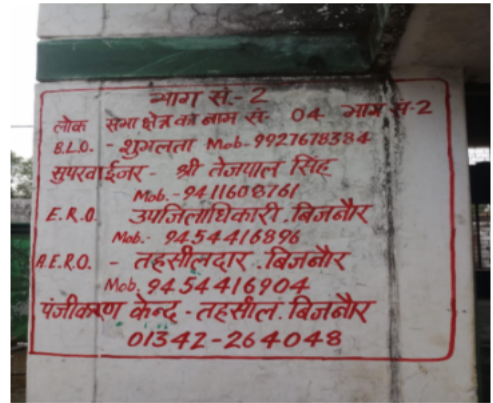 भाग सं.- 2
लोक सभा क्षेत्र का नाम सं- 04 भाग सं-2
B.L.O. - शुगलता Mob-9927678384
सुपरवाईजर - श्री तेजपाल सिंह
Mob.-9411608761
E.R.O. उपजिलाधिकारी.बिजनौर
Mob.- 9454416896
A.E.R.O. - तहसीलदार.बिजनौर
Mob. 9454416904
पंजीकरण केन्द - तहसील.बिजनौर
01342-264048